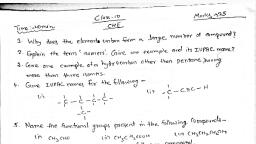 Class-10
CHE
Marks-25
1. Why does the element carbon form a large number of compounds?
2. Explain the term 'isomers'. Give one example and its IUPAC name?
3. Give one example of a hydrocarbon other than pentane having
more than three isomers.
4. Give IUPAC names for the following -
(i) -C-C-C-C- (ii) -C-C≡C-H
5. Name the functional groups present in the following compounds-
(i) CH3CHO (ii) CH3CH2COOH (iii) CH3CH2CH2OH